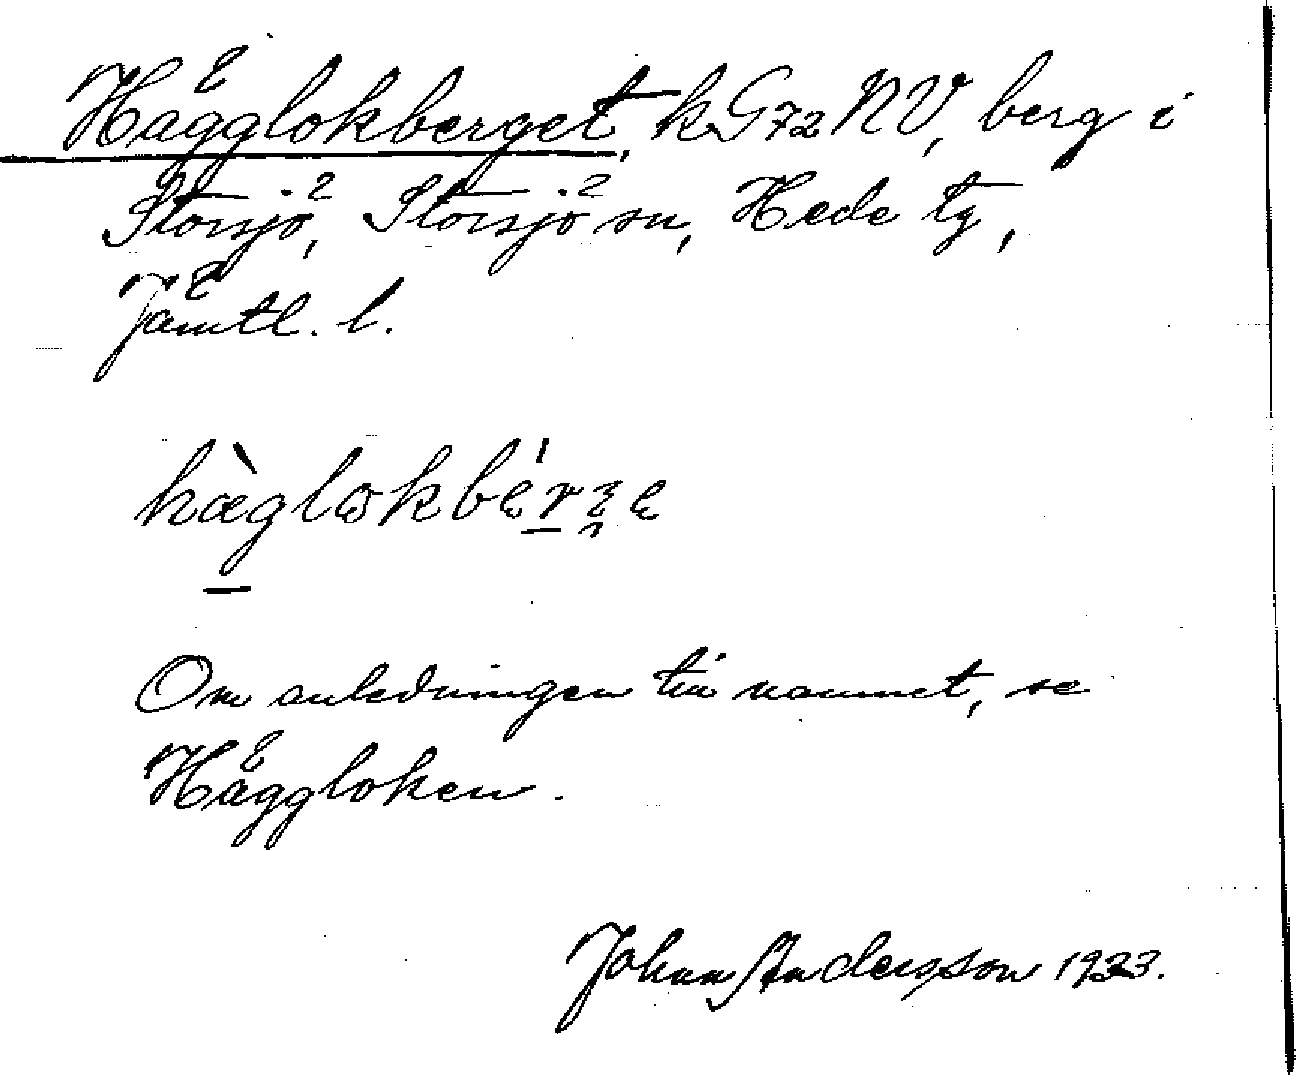 Hägglokberget, k G72 NV, berg i
Storsjö, Storsjö sn, Hede tg,
Jämtl. l.
hæ̀glokbérʒe
Om anledningen till namnet, se
Häggloken.
Johan Andersson 1933.